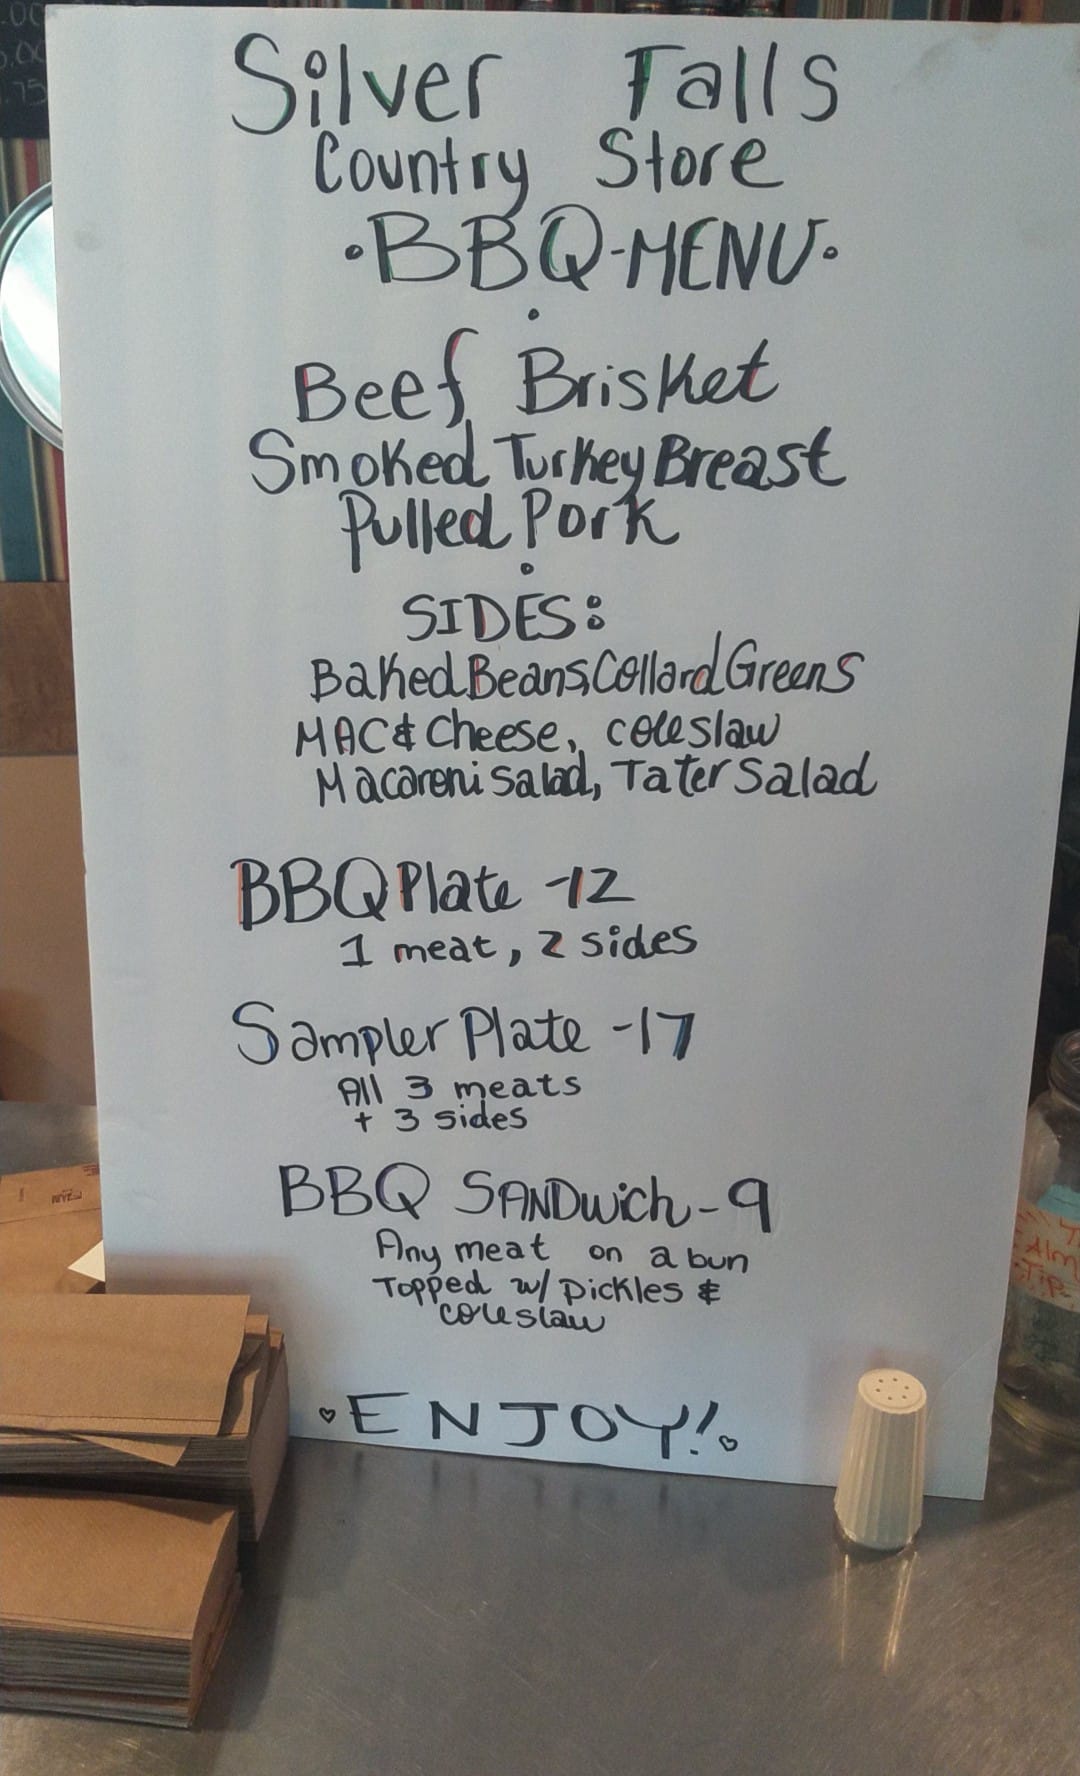 Silver Falls
Country Store
·BBQ-MENU·
Beef Brisket
Smoked Turkey Breast
Pulled Pork
SIDES:
Baked Beans, Collard Greens
MAC & Cheese, coleslaw
Macaroni Salad, Tater Salad
BBQ Plate -12
1 meat, 2 sides
Sampler Plate -17
All 3 meats
+ 3 sides
BBQ SANDwich-9
Any meat on a bun
Topped w/ pickles &
coleslaw
·ENJOY!·